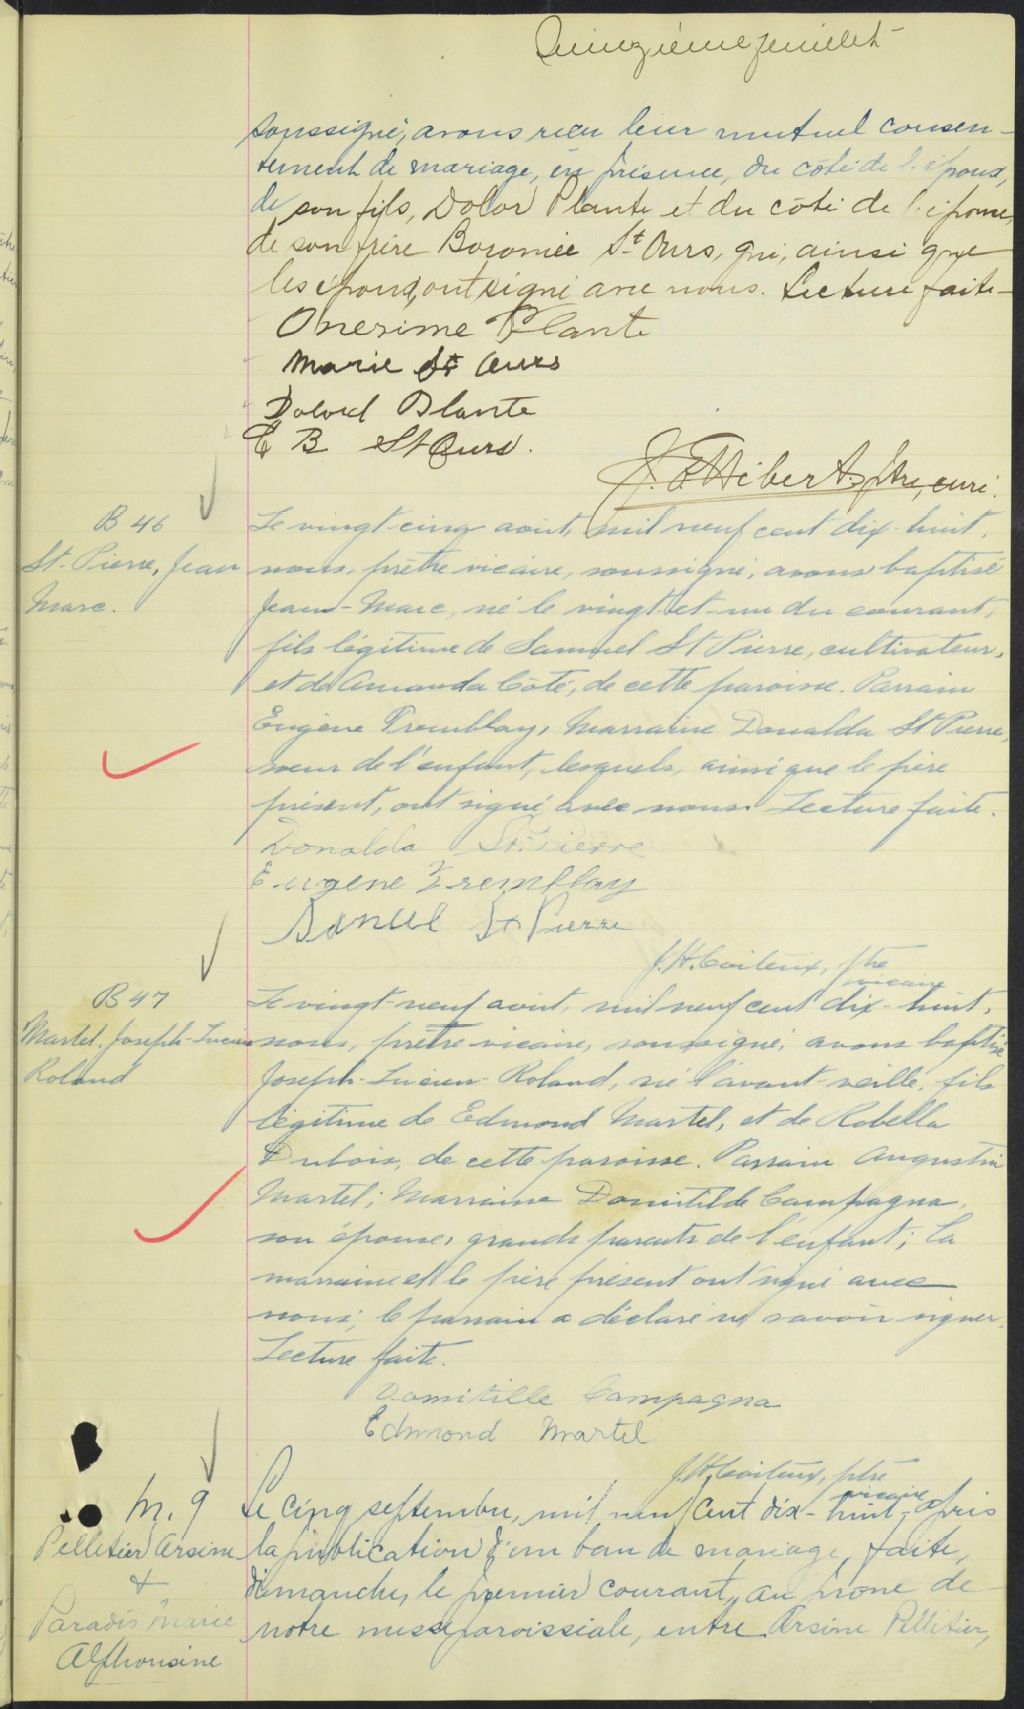 Quinzième feuillet
soussigné, avons reçu leur mutuel consen-
tement de mariage, en présence, du côté de l'époux,
de son fils, Dolor Plante et du côté de l'épouse,
de son frère Boromée St-Ours, qui, ainsi que
les époux, ont signé avec nous. Lecture faite
Onesime Plante
Marie St Ours
Dolord Plante
E B St Ours.
J. E. Hébert, ptre, curé.
B 46
St-Pierre, Jean
Marc.
Le vingt-cinq août, mil neuf cent dix-huit,
nous, prêtre vicaire, soussigné, avons baptisé
Jean-Marc, né le vingt-et-un du courant,
fils légitime de Samuel St Pierre, cultivateur,
et de Amanda Côté, de cette paroisse. Parrain
Eugène Tremblay, Marraine Donalda St Pierre,
soeur de l'enfant, lesquels, ainsi que le père
présent, ont signé avec nous. Lecture faite.
Donalda St. Pierre
Eugene Tremblay
Samuel St Pierre
J. H. Coiteux, ptre
vicaire
B 47
Martel, Joseph-Lucien
Roland
Le vingt-neuf août, mil neuf cent dix-huit,
nous, prêtre vicaire, soussigné, avons baptisé
Joseph-Lucien-Roland, né l'avant-veille, fils
légitime de Edmond Martel, et de Robella
Dubois, de cette paroisse. Parrain Augustin
Martel; Marraine Domitilde Campagna,
son épouse, grands parents de l'enfant; la
marraine et le père présent ont signé avec
nous; le parrain a déclaré ne savoir signer.
Lecture faite.
Domitille Campagna
Edmond Martel
J. H. Coiteux, ptre
vicaire
M. 9
Pelletier Arsène
&
Paradis Marie
Alphonsine
Le cinq septembre, mil neuf cent dix-huit, après
la publication d'un ban de mariage, faite,
dimanche, le premier courant, au prone de
notre messe paroissiale, entre Arsène Pelletier,